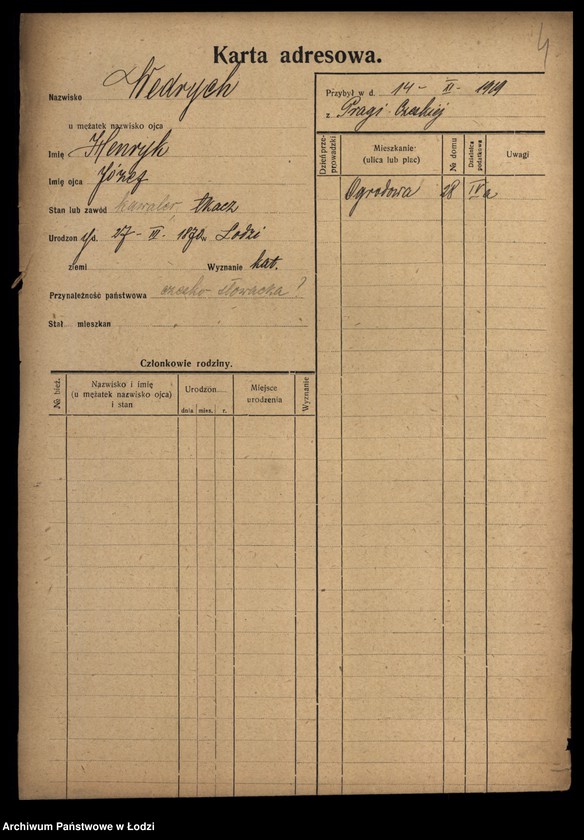 4
Karta adresowa.
Nazwisko Wedrych
u mężatek nazwisko ojca
Imię Henryk
Imię ojca Józef
Stan lub zawód kawaler, tkacz
Urodzon y/a. 27 - III - 1892 w Łodzi
ziemi Wyznanie kat.
Przynależność państwowa czesko-słowacka?
Stał. mieszkan
Członkowie rodziny.
№ bież. Nazwisko i imię (u mężatek nazwisko ojca) i stan Urodzon Miejsce urodzenia Wyznanie
dnia mies. r.
Przybył w d. 14 - XI - 1919
z Pragi Czeskiej
Dzień przeprowadzki Mieszkanie: (ulica lub plac) № domu Dzielnica podatkowa Uwagi
Ogrodowa 28 IV a
Archiwum Państwowe w Łodzi